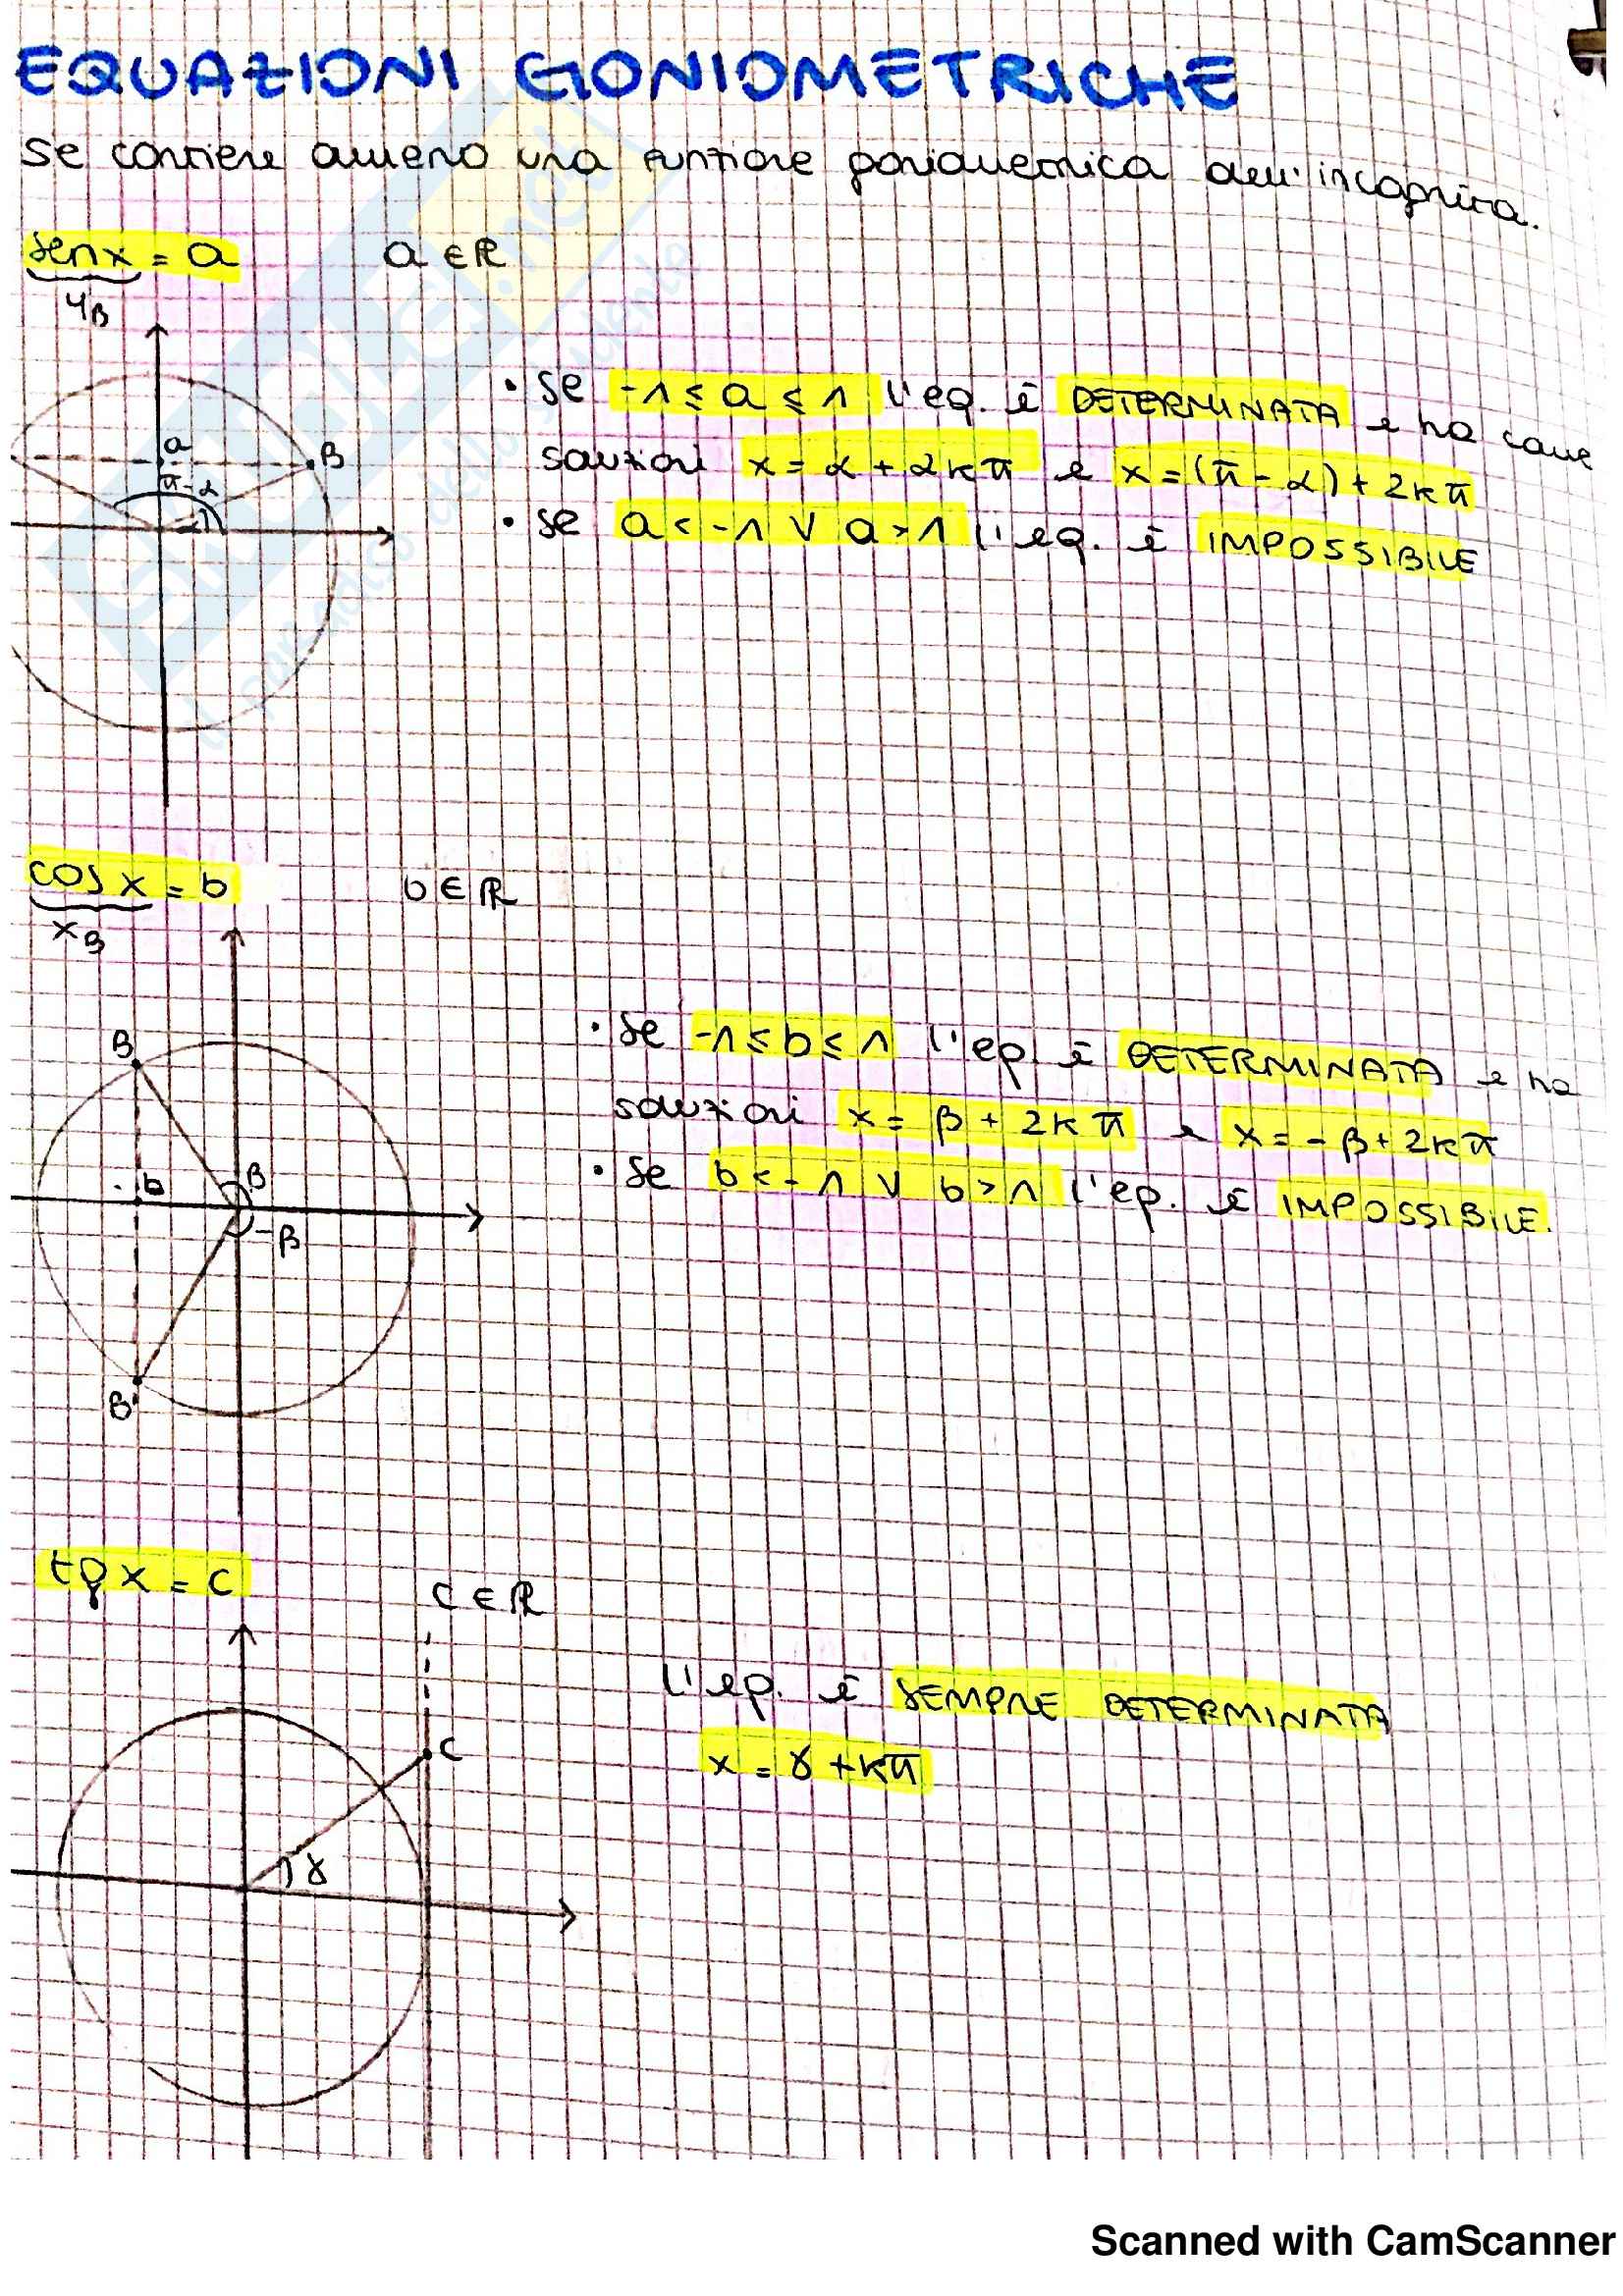 EQUAZIONI GONIOMETRICHE
Se contiene almeno una funzione goniometrica dell'incognita.
senx = a a ∈ R
yB
• Se -1 ≤ a ≤ 1 l'eq. è DETERMINATA e ha come
soluzioni x = α + 2kπ e x = (π - α) + 2kπ
• Se a < -1 V a > 1 l'eq. è IMPOSSIBILE
a
B
π-α
α
cos x = b b ∈ R
xB
• Se -1 ≤ b ≤ 1 l'eq. è DETERMINATA e ha
soluzioni x = β + 2kπ e x = -β + 2kπ
• Se b < -1 V b > 1 l'eq. è IMPOSSIBILE.
B
b
β
-β
B'
tg x = c c ∈ R
l'eq. è SEMPRE DETERMINATA
x = γ + kπ
C
γ
SKUOLA.net
il paradiso dello studente
Scanned with CamScanner